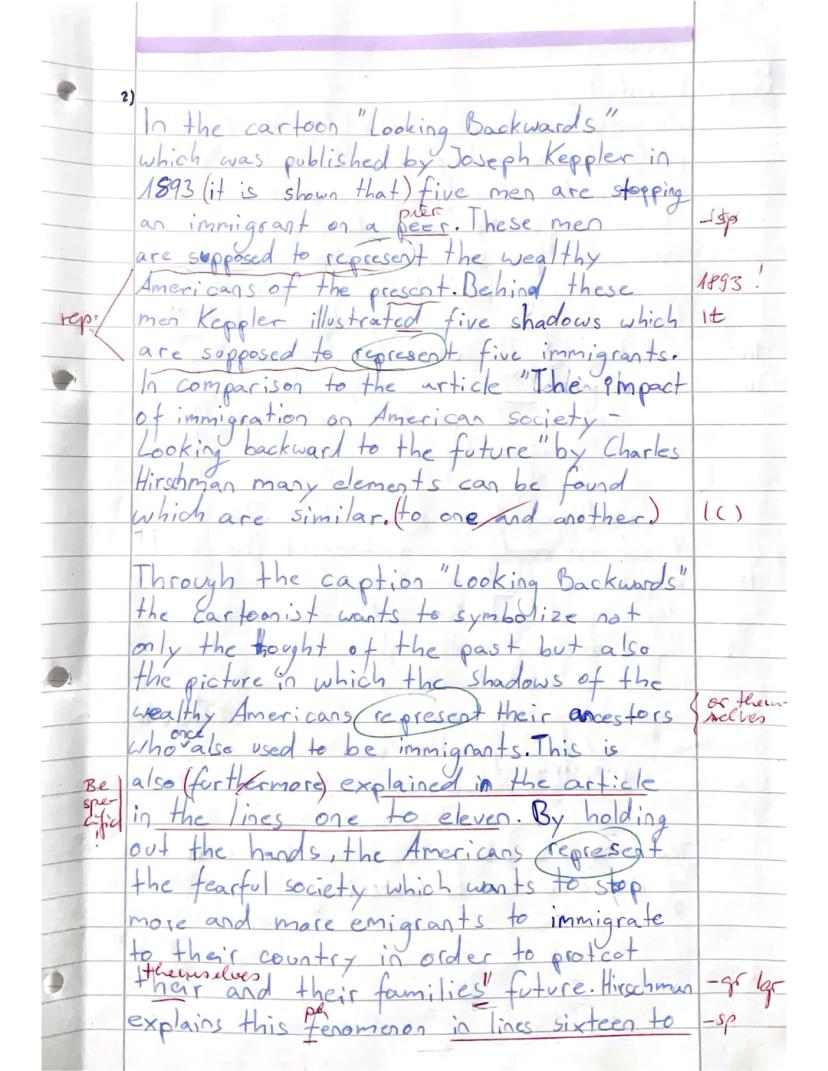 2)
In the cartoon "Looking Backwards"
which was published by Joseph Keppler in
1893 (it is shown that) five men are stopping
pier
an immigrant on a peer. These men -sp
are supposed to represent the wealthy
Americans of the present. Behind these 1893!
rep. men Keppler illustrated five shadows which it
are supposed to represent five immigrants.
In comparison to the article "The impact
of immigration on American society -
Looking backward to the future" by Charles
Hirschman many elements can be found
which are similar. (to one and another.) ( )
Through the caption "Looking Backwards"
the Cartoonist wants to symbolize not
only the thought of the past but also
the picture in which the shadows of the
wealthy Americans represent their ancestors or them-
selves
once
who also used to be immigrants. This is
Be spe-cific! also (furthermore) explained in the article
in the lines one to eleven. By holding
out the hands, the Americans represent
the fearful society which wants to stop
more and more emigrants to immigrate
to their country in order to protect
themselves
their and their families" future. Hirschman -gr lgr
ph
explains this fenomenon in lines sixteen to -sp